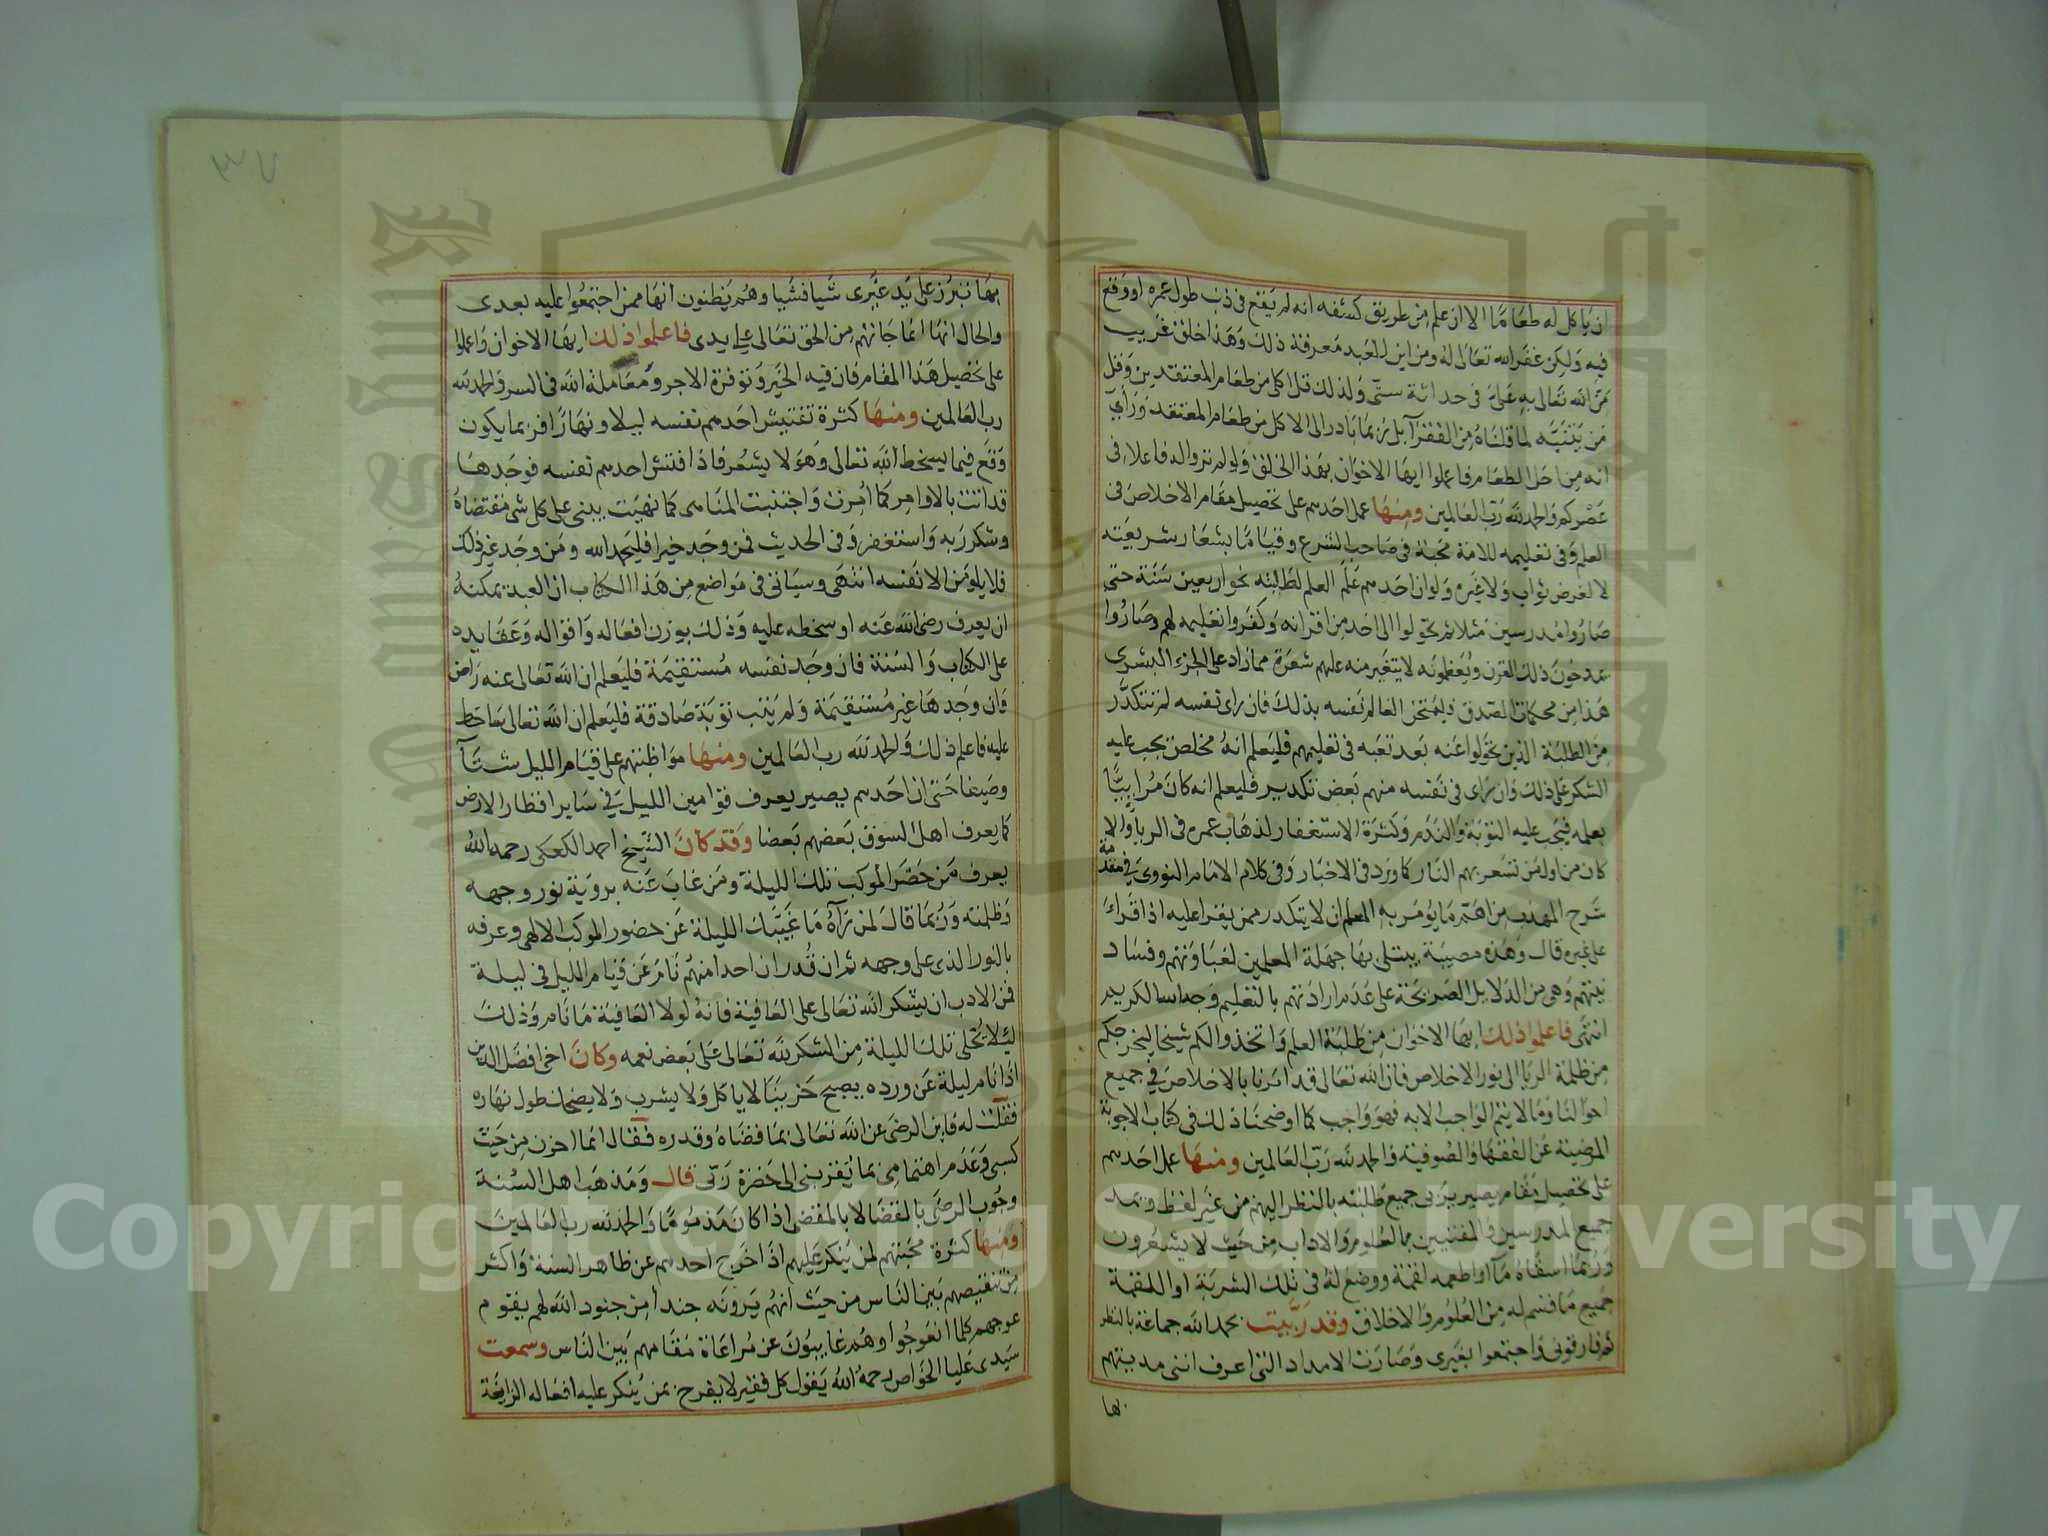 ان ياكل له طعاما الا ان علم من طريق كشفه انه لم يقع فى ذنب طول عمره او وقع
فيه ولكن غفر الله تعالى له ومن اين للعبد معرفة ذلك وهذا خلق غريب
من الله تعالى به على فى حداثة سنى ولذلك قل اكلى من طعام المعتقدين وقل
من يتنبه لما قلناه من الفقرآ بل ربما بادر الى الاكل من طعام المعتقد وراى
انه من احل الطعام فاعملوا ايها الاخوان بهذا الخلق ولو لم تروا له فاعلا فى
عصركم والحمد لله رب العالمين ومنها عمل احدهم على تحصيل مقام الاخلاص فى
العلم وفى تعليمه للامة محبة فى صاحب الشرع وقياما بشعار شريعته
لا لغرض ثواب ولا غيره ولو ان احدهم علم العلم لطلبته نحو اربعين سنة حتى
صاروا مدرسين مثلا ثم تحولوا الى احد من اقرانه وكفروا تعليمه لهم وصاروا
يمدحون ذلك القرن ويعظمونه لا يتغير منه عليهم شعرة مما زاد على الجزء البشرى
هذا من محكمات الصدق فليمتحن العالم نفسه بذلك فان راى نفسه لم تتكدر
من الطلبة الذين تحولوا عنه بعد تعبه فى تعليمهم فليعلم انه مخلص يجب عليه
الشكر على ذلك وان راى فى نفسه منهم بعض تكدير فليعلم انه كان مرابيا
بعمله فيجب عليه التوبة والندم وكثرة الاستغفار لذهاب عمره فى الريا والا
كان من اول من تسعر بهم النار كما ورد فى الاخبار وفى كلام الامام النووى فى مقدمة
شرح المهذب من اهم ما يؤمر به المعلم ان لا يتكدر ممن يقرا عليه اذا قراء
على غيره قال وهذه مصيبة يبتلى بها جهلة المعلمين لغباوتهم وفساد
نيتهم وهى من الدلايل الصريحة على عدم ارادتهم بالتعليم وجه الله الكريم
انتهى فاعلموا ذلك ايها الاخوان من طلبة العلم واتخذوا لكم شيخا ليخرجكم
من ظلمة الريا الى نور الاخلاص فان الله تعالى قد امرنا بالاخلاص فى جميع
احوالنا وما لا يتم الواجب الا به فهو واجب كما اوضحنا ذلك فى كتاب الاجوبة
المرضية عن الفقها والصوفية والحمد لله رب العالمين ومنها عمل احدهم
على تحصيل مقام يصير يربى جميع طلبته بالنظر اليهم من غير لفظ ويمد
جميع المدرسين والمفتيين بالعلوم والاداب من حيث لا يشعرون
وربما اسقاه مآ او اطعمه لقمة ووضع له فى تلك الشربة او اللقمة
جميع ما قسم له من العلوم والاخلاق وقد ربيت بحمد الله جماعة بالنظر
ثم فارقونى واجتمعوا بغيرى وصارت الامداد التى اعرف اننى مديتهم
بها
٣٧
بها تبرز على يد غيرى شيا فشيا وهم يظنون انها ممن اجتمعوا عليه بعدى
والحال انها انما جاتهم من الحق تعالى على يدى فاعلموا ذلك ايها الاخوان واعملوا
على تحصيل هذا المقام فان فيه الخير وتوفرة الاجر ومعاملة الله فى السر والحمد لله
رب العالمين ومنها كثرة تفتيش احدهم نفسه ليلا ونهارا فربما يكون
وقع فيما يسخط الله تعالى وهو لا يشعر فاذا فتش احدهم نفسه فوجدها
قد اتت بالاوامر كما امرت واجتنبت المناهى كما نهيت يبنى على كل شى مقتضاه
وشكر ربه واستغفر وفى الحديث فمن وجد خيرا فليحمد الله ومن وجد غير ذلك
فلا يلومن الا نفسه انتهى وسياتى فى مواضع من هذا الكتاب ان العبد يمكنه
ان يعرف رضى الله عنه او سخطه عليه وذلك بوزن افعاله واقواله وعقايده
على الكتاب والسنة فان وجد نفسه مستقيمة فليعلم ان الله تعالى عنه راض
وان وجدها غير مستقيمة ولم يتب توبة صادقة فليعلم ان الله تعالى ساخط
عليه فاعلم ذلك والحمد لله رب العالمين ومنها مواظبتهم على قيام الليل شتآ
وصيفا حتى ان احدهم يصير يعرف قوامين الليل فى ساير اقطار الارض
كما يعرف اهل السوق بعضهم بعضا وقد كان الشيخ احمد الكعكى رحمه الله
يعرف من حضر الموكب تلك الليلة ومن غاب عنه بروية نور وجهه
وظلمته وربما قال لمن رآه ما غيبك الليلة عن حضور الموكب الالهى وعرفه
بالنور الذى على وجهه ثم ان قدر ان احدا منهم نام عن قيام الليل فى ليلة
فمن الادب ان يشكر الله تعالى على العافية فانه لولا العافية ما نام وذلك
ليلا يخلى تلك الليلة من الشكر لله تعالى على بعض نعمه وكان اخى افضل الدين
اذا نام ليلة عن ورده يصبح حزينا لا ياكل ولا يشرب ولا يضحك طول نهاره
فقلت له فاين الرضى عن الله تعالى بما قضاه وقدره فقال انما احزن من حيث
كسبى وعدم اهتمامى بما يقربنى الى حضرة ربى قال ومذهب اهل السنة
وجوب الرضى بالقضا لا بالمقضى اذا كان مذموما والحمد لله رب العالمين
ومنها كثرة محبتهم لمن ينكر عليهم اذا خرج احدهم عن ظاهر السنة واكثر
من تنقيصهم بين الناس من حيث انهم يرونه جندا من جنود الله لهم يقوم
عوجهم كلما انعوجوا وهم غايبون عن مراعاة مقامهم بين الناس وسمعت
سيدى عليا الخواص رحمه الله يقول كل فقير لا يفرح بمن ينكر عليه افعاله الزايغة
Copyright © King Saud University